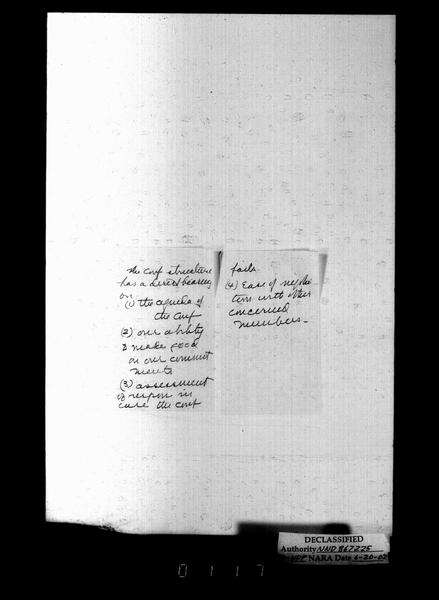 the conf structure
has a direct bearing
on
(1) the agenda of
the conf
(2) our ability
to make good
on our commit
ments
(3) assessment
of respon in
case the conf
fails
(4) Ease of negotia
tion with other
concerned
members.
DECLASSIFIED
Authority NND 867225
NARA Date 6-20-02
0117